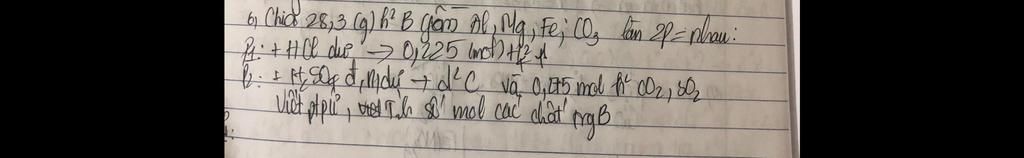 6, Chia 28,3 (g) h² B gồm Al, Mg, FeCO3 làm 2p = nhau:
P1: + HCl dư → 0,225 (mol) H2 ↑
P2: + H2SO4 đ, n, dư → d² C và 0,275 mol h² CO2, SO2
Viết ptpứ, Tính số mol các chất trg B